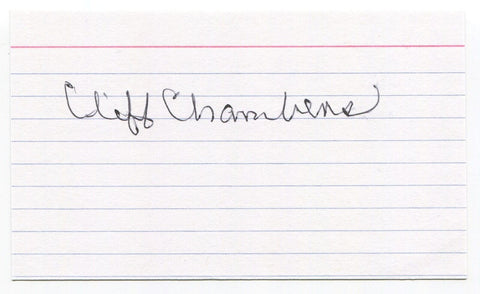 Cliff Chambers